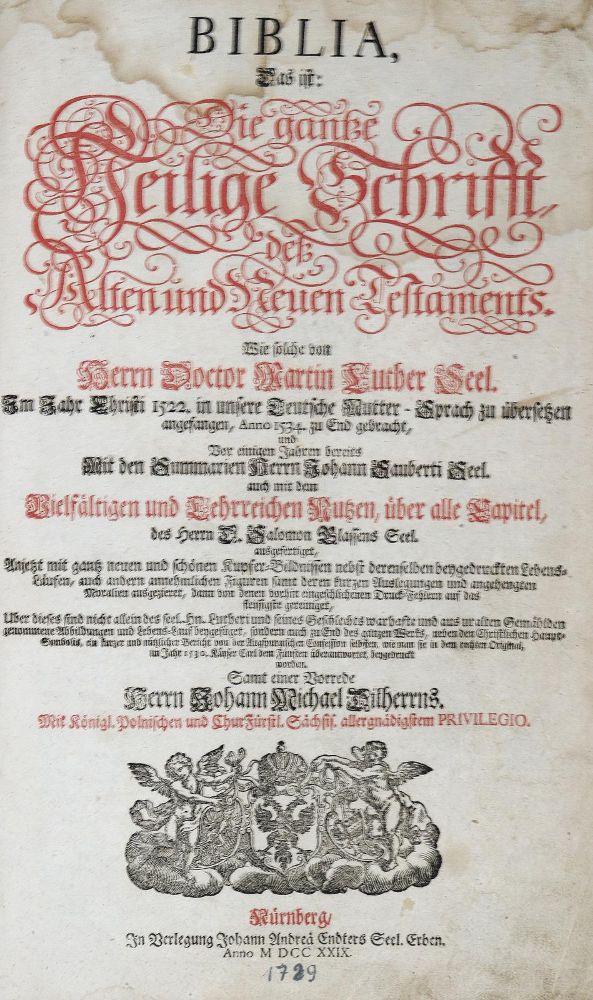 BIBLIA,
Das ist:
Die gantze
Heilige Schrifft,
deß
Alten und Neuen Testaments.
Wie solche von
Herrn Doctor Martin Luther Seel.
Im Jahr Christi 1522. in unsere Teutsche Mutter-Sprach zu übersetzen
angefangen, Anno 1534. zu End gebracht,
und
Vor einigen Jahren bereits
Mit den Summarien Herrn Johann Sauberti Seel.
auch mit dem
Vielfältigen und Lehrreichen Nutzen, über alle Capitel,
des Herrn D. Salomon Glassens Seel.
ausgefertiget,
Anjetzt mit gantz neuen und schönen Kupfer-Bildnissen nebst derenselben beygedruckten Lebens-
Läufen, auch andern annehmlichen Figuren samt deren kurzen Auslegungen und angehengten
Moralien ausgezieret, dann von denen vorhin eingeschlichenen Druck-Fehlern auf das
fleissigste gereiniget,
Uber dieses sind nicht allein des seel. Hn. Lutheri und seines Geschlechts warhafte und aus uralten Gemählden
genommene Abbildungen und Lebens-Lauf beygefüget, sondern auch zu End des gantzen Werks, neben den Christlichen Haupt-
Symbolis, ein kurzer und nützlicher Bericht von der Augspurgischen Confession selbsten, wie man sie in dem rechten Original,
im Jahr 1530. Käyser Carl dem Fünften überantwortet, beygedruckt
worden.
Samt einer Vorrede
Herrn Johann Michael Dilherrns.
Mit Königl. Polnischen und ChurFürstl. Sächsis. allergnädigstem PRIVILEGIO.
Nürnberg/
In Verlegung Johann Andreä Endters Seel. Erben.
Anno M DCC XXIX.
1729